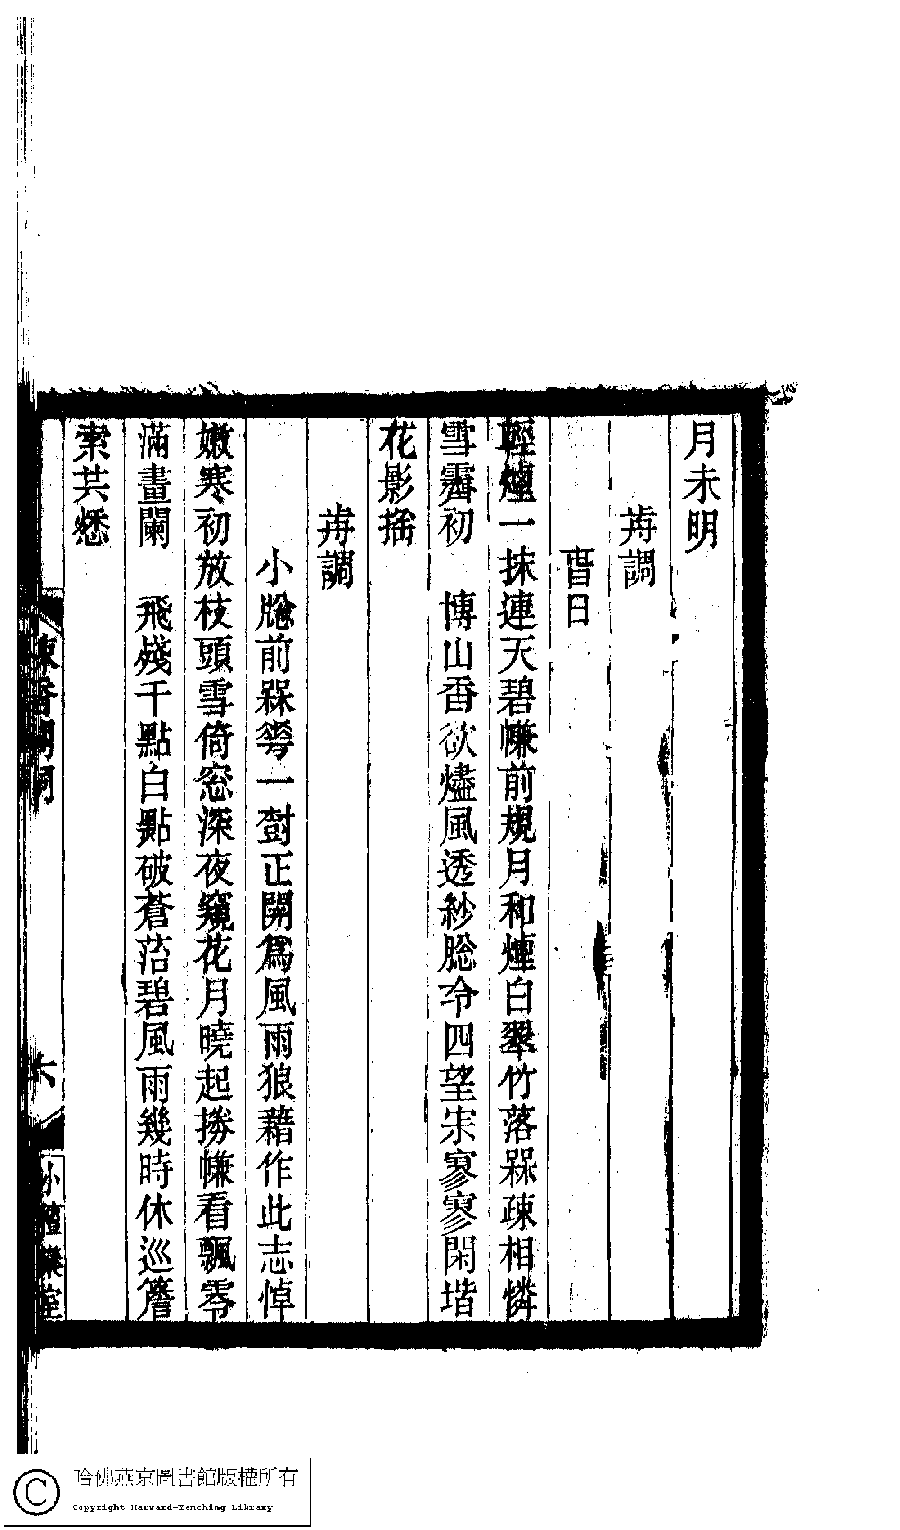 月未明
歬調
旾日
輕煙一抹連天碧㡘前規月和煙白翠竹落槑疎相憐
雪霽初　博山香欲燼風透紗牕冷四望宋寥寥閑堦
花影搖
歬調
小牕前槑萼一尌正開爲風雨狼藉作此志悼
嫩寒初放枝頭雪倚窓深夜窺花月曉起捲㡘看飄零
滿畫闌　飛殘千點白點破蒼苔碧風雨幾時休巡簷
索共愁
疎香閣詞
六
小檀欒室
哈佛燕京圖書館版權所有
Copyright Harvard-Yenching Library